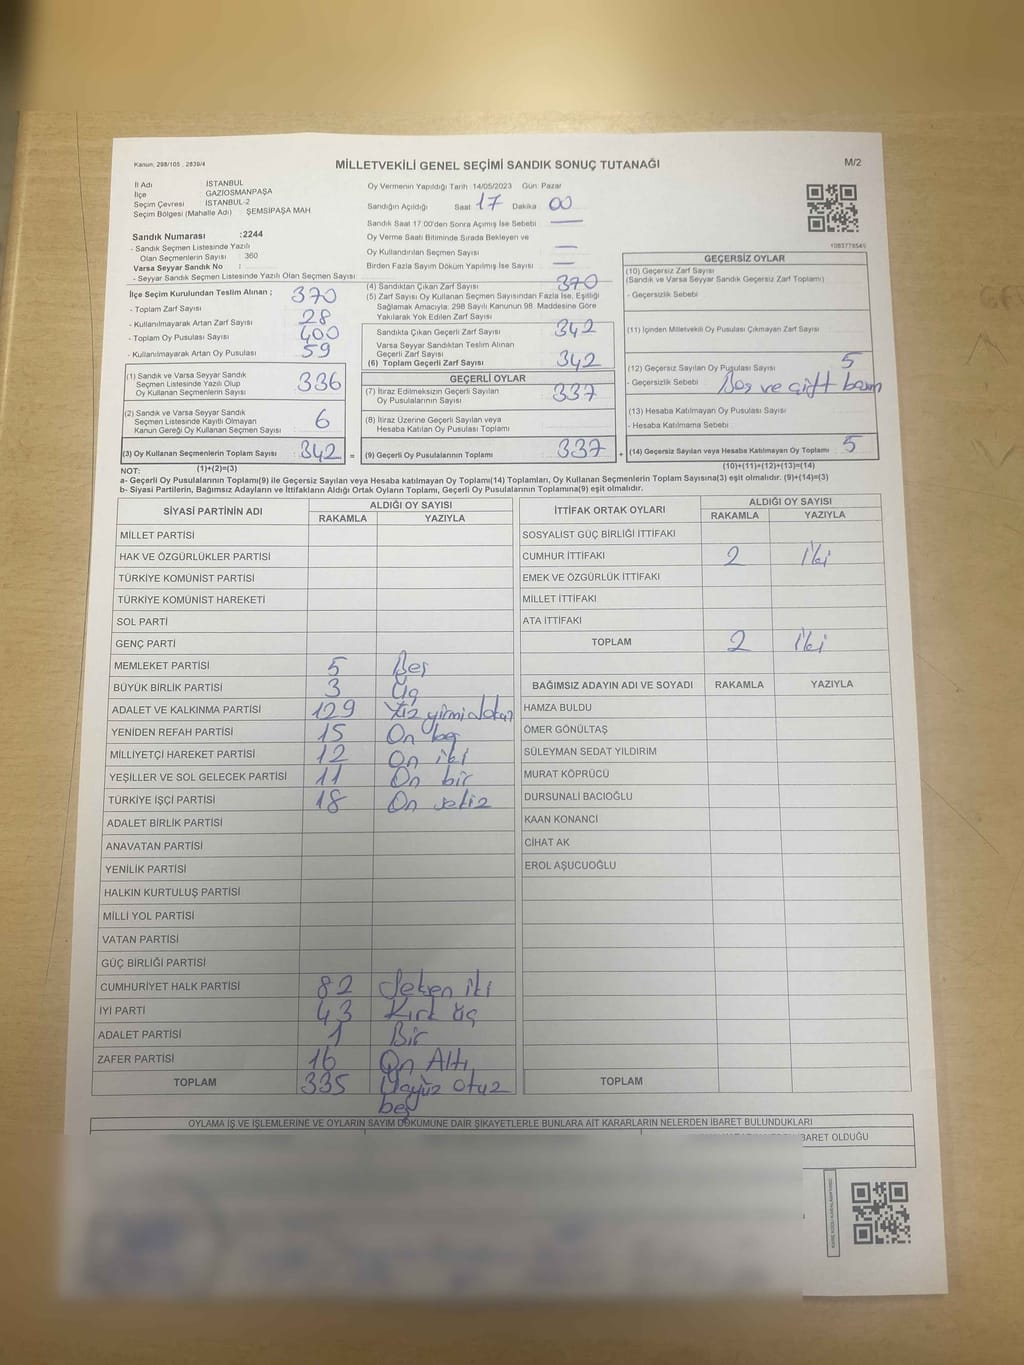 Kanun; 298/105 , 2839/4
MİLLETVEKİLİ GENEL SEÇİMİ SANDIK SONUÇ TUTANAĞI
M/2
İl Adı İSTANBUL
İlçe GAZİOSMANPAŞA
Seçim Çevresi İSTANBUL-2
Seçim Bölgesi (Mahalle Adı) ŞEMSİPAŞA MAH
Sandık Numarası :2244
- Sandık Seçmen Listesinde Yazılı
Olan Seçmenlerin Sayısı : 360
Varsa Seyyar Sandık No :
- Seyyar Sandık Seçmen Listesinde Yazılı Olan Seçmen Sayısı
Oy Vermenin Yapıldığı Tarih 14/05/2023 Gün: Pazar
Sandığın Açıldığı Saat 17 Dakika 00
Sandık Saat 17:00'den Sonra Açımış İse Sebebi —
Oy Verme Saati Bitiminde Sırada Bekleyen ve
Oy Kullandırılan Seçmen Sayısı —
Birden Fazla Sayım Döküm Yapılmış İse Sayısı —
İlçe Seçim Kurulundan Teslim Alınan ;
- Toplam Zarf Sayısı 370
- Kullanılmayarak Artan Zarf Sayısı 28
- Toplam Oy Pusulası Sayısı 400
- Kullanılmayarak Artan Oy Pusulası 59
(1) Sandık ve Varsa Seyyar Sandık
Seçmen Listesinde Yazılı Olup
Oy Kullanan Seçmenlerin Sayısı 336
(2) Sandık ve Varsa Seyyar Sandık
Seçmen Listesinde Kayıtlı Olmayan
Kanun Gereği Oy Kullanan Seçmen Sayısı 6
(3) Oy Kullanan Seçmenlerin Toplam Sayısı 342 =
(4) Sandıktan Çıkan Zarf Sayısı 370
(5) Zarf Sayısı Oy Kullanan Seçmen Sayısından Fazla İse, Eşitliği
Sağlamak Amacıyla: 298 Sayılı Kanunun 98. Maddesine Göre
Yakılarak Yok Edilen Zarf Sayısı
Sandıkta Çıkan Geçerli Zarf Sayısı 342
Varsa Seyyar Sandıktan Teslim Alınan
Geçerli Zarf Sayısı
(6) Toplam Geçerli Zarf Sayısı 342
GEÇERLİ OYLAR
(7) İtiraz Edilmeksizin Geçerli Sayılan
Oy Pusulalarının Sayısı 337
(8) İtiraz Üzerine Geçerli Sayılan veya
Hesaba Katılan Oy Pusulası Toplamı
(9) Geçerli Oy Pusulalarının Toplamı 337 +
GEÇERSİZ OYLAR
(10) Geçersiz Zarf Sayısı
(Sandık ve Varsa Seyyar Sandık Geçersiz Zarf Toplamı)
- Geçersizlik Sebebi
(11) İçinden Milletvekili Oy Pusulası Çıkmayan Zarf Sayısı
(12) Geçersiz Sayılan Oy Pusulası Sayısı 5
- Geçersizlik Sebebi Boş ve çift basım
(13) Hesaba Katılmayan Oy Pusulası Sayısı
- Hesaba Katılmama Sebebi
(14) Geçersiz Sayılan veya Hesaba Katılmayan Oy Toplamı 5
NOT: (1)+(2)=(3) (10)+(11)+(12)+(13)=(14)
a- Geçerli Oy Pusulalarının Toplamı(9) ile Geçersiz Sayılan veya Hesaba katılmayan Oy Toplamı(14) Toplamları, Oy Kullanan Seçmenlerin Toplam Sayısına(3) eşit olmalıdır. (9)+(14)=(3)
b- Siyasi Partilerin, Bağımsız Adayların ve İttifakların Aldığı Ortak Oyların Toplamı, Geçerli Oy Pusulalarının Toplamına(9) eşit olmalıdır.
SİYASİ PARTİNİN ADI ALDIĞI OY SAYISI
RAKAMLA YAZIYLA
MİLLET PARTİSİ
HAK VE ÖZGÜRLÜKLER PARTİSİ
TÜRKİYE KOMÜNİST PARTİSİ
TÜRKİYE KOMÜNİST HAREKETİ
SOL PARTİ
GENÇ PARTİ
MEMLEKET PARTİSİ 5 Beş
BÜYÜK BİRLİK PARTİSİ 3 Üç
ADALET VE KALKINMA PARTİSİ 129 Yüz yirmi dokuz
YENİDEN REFAH PARTİSİ 15 On beş
MİLLİYETÇİ HAREKET PARTİSİ 12 On iki
YEŞİLLER VE SOL GELECEK PARTİSİ 11 On bir
TÜRKİYE İŞÇİ PARTİSİ 18 On sekiz
ADALET BİRLİK PARTİSİ
ANAVATAN PARTİSİ
YENİLİK PARTİSİ
HALKIN KURTULUŞ PARTİSİ
MİLLİ YOL PARTİSİ
VATAN PARTİSİ
GÜÇ BİRLİĞİ PARTİSİ
CUMHURİYET HALK PARTİSİ 82 Seksen iki
İYİ PARTİ 43 Kırk üç
ADALET PARTİSİ 1 Bir
ZAFER PARTİSİ 16 On Altı
TOPLAM 335 Üçyüz otuz
beş
İTTİFAK ORTAK OYLARI ALDIĞI OY SAYISI
RAKAMLA YAZIYLA
SOSYALİST GÜÇ BİRLİĞİ İTTİFAKI
CUMHUR İTTİFAKI 2 İki
EMEK VE ÖZGÜRLÜK İTTİFAKI
MİLLET İTTİFAKI
ATA İTTİFAKI
TOPLAM 2 İki
BAĞIMSIZ ADAYIN ADI VE SOYADI RAKAMLA YAZIYLA
HAMZA BULDU
ÖMER GÖNÜLTAŞ
SÜLEYMAN SEDAT YILDIRIM
MURAT KÖPRÜCÜ
DURSUNALİ BACIOĞLU
KAAN KONANCİ
CİHAT AK
EROL AŞUCUOĞLU
TOPLAM
OYLAMA İŞ VE İŞLEMLERİNE VE OYLARIN SAYIM DÖKÜMÜNE DAİR ŞİKAYETLERLE BUNLARA AİT KARARLARIN NELERDEN İBARET BULUNDUKLARI
BARET OLDUĞU